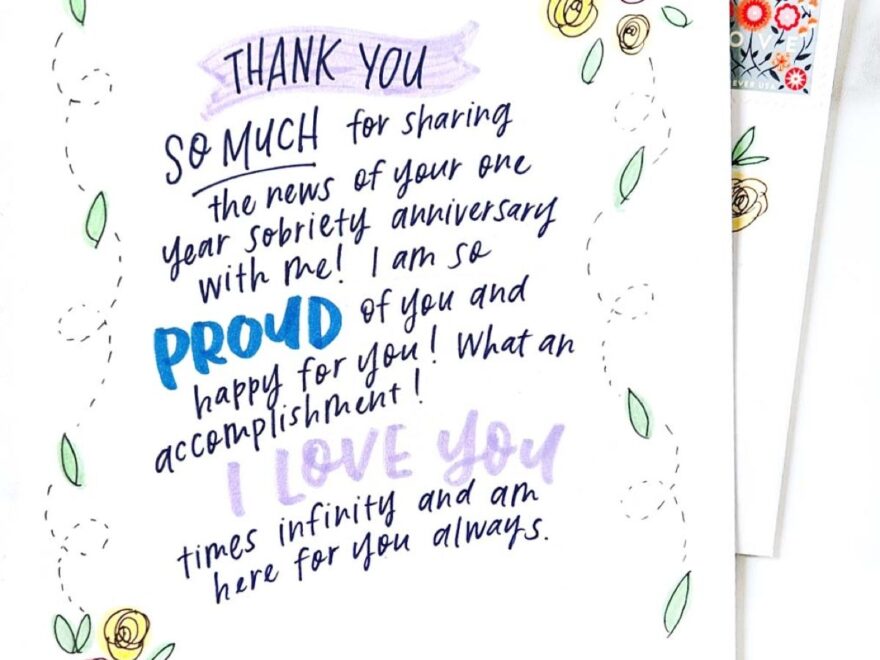 THANK YOU
SO MUCH for sharing
the news of your one
year sobriety anniversary
with me! I am so
PROUD of you and
happy for you! What an
accomplishment!
I LOVE YOU
times infinity and am
here for you always.
OVE
EVER USA